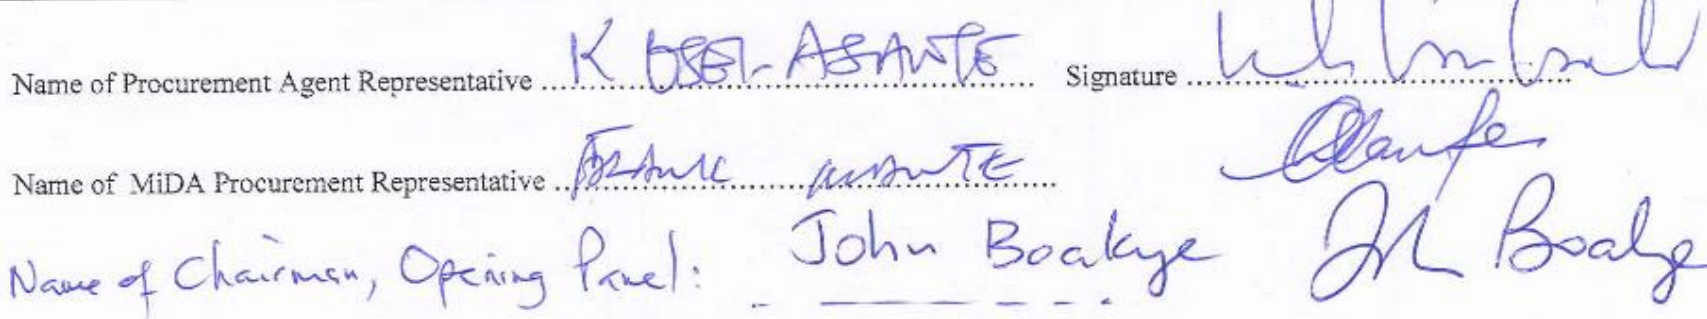 Name of Procurement Agent Representative ..... K OSEI-ASANTE ..... Signature .....
Name of MiDA Procurement Representative ..... FRANK MANTE .....
Name of Chairman, Opening Panel: John Boakye John Boakye